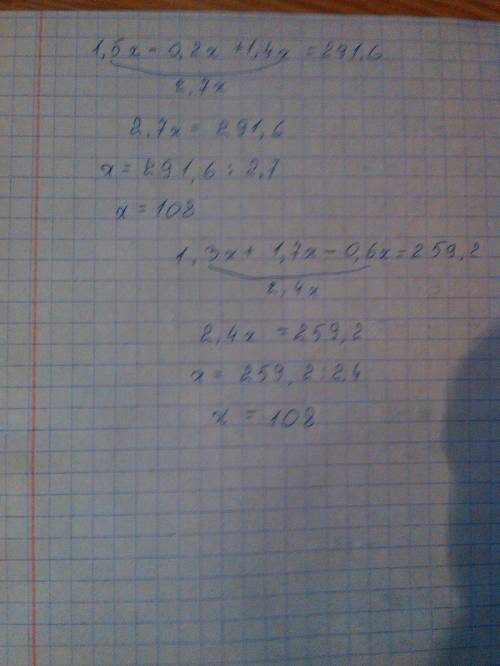 1,5x - 0,2x + 1,4x = 291,6
2,7x
2,7x = 291,6
x = 291,6 : 2,7
x = 108
1,3x + 1,7x - 0,6x = 259,2
2,4x
2,4x = 259,2
x = 259,2 : 2,4
x = 108